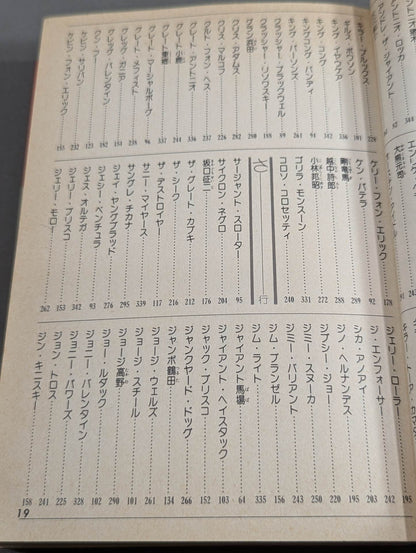 キラー・ブルックス 229
ギルス・ポワソン 191
キング・イヤウケア 336
キング・コング 342
キングコング・バンディ 94
キング・パーソンズ 261
クラッシャー・ブラックウェル 89
クラッシャー・リソワスキー 198
グラン浜田 250
クリス・アダムス 292
クリス・マルコフ 218
クルト・フォン・ヘス 237
グレート・アントニオ 336
グレート小鹿 244
グレート東郷 337
グレート・マーシャルボーグ 96
グレート・メフィスト 238
グレッグ・ガニア 151
グレッグ・バレンタイン 192
クン・フー 123
ケビン・サリバン 232
ケビン・フォン・エリック 155
ケリー・フォン・エリック 128
ケン・パテラ 92
剛竜馬 289
越中詩郎 288
小林邦昭 272
ゴリラ・モンスーン 331
コロソ・コロセッティ 240
さ行
サージャント・スローター 95
サイクロン・ネグロ 204
坂口征二 176
ザ・グレート・カブキ 212
ザ・シーク 216
ザ・デストロイヤー 117
サニー・マイヤース 339
サングレ・チカナ 295
ジェイ・ヤングブラッド 276
ジェシー・ベンチュラ 93
ジェス・オルテガ 342
ジェリー・ブリスコ 153
ジェリー・モロー 262
ジェリー・ローラー 195
ジ・エンフォーサー 242
シカ・アノアイ 203
ジノ・ヘルナンデス 205
ジプシー・ジョー 220
ジミー・スヌーカ 250
ジミー・バリアント 243
ジム・ブランゼル 156
ジム・ライト 335
ジャイアント馬場 64
ジャイアント・ヘイスタック 103
ジャック・ブリスコ 152
ジャンクヤード・ドッグ 266
ジャンボ鶴田 134
ジョージ・ウェルズ 261
ジョージ・スチール 101
ジョージ高野 290
ジョー・ルダック 102
ジョニー・バレンタイン 328
ジョニー・パワーズ 225
ジョン・トロス 241
ジン・キニスキー 158
19